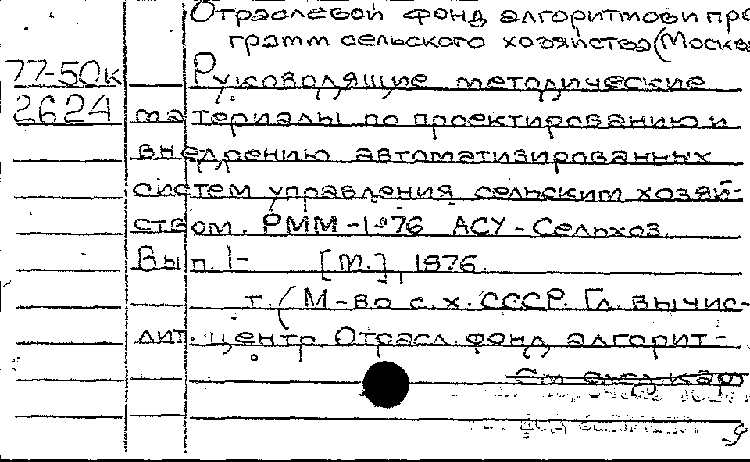 Отраслевой фонд алгоритмов и про
грамм сельского хозяйства (Москва
77-50к Руководящие методические
2624 материалы по проектированию и
внедрению автоматизированных
систем управления сельским хозяй-
ством. РММ-1-76 АСУ-Сельхоз.
Вып. 1- [М.], 1976.
т. (М-во с.х. СССР. Гл. вычис-
лит. центр. Отрасл. фонд алгорит-
См след карт